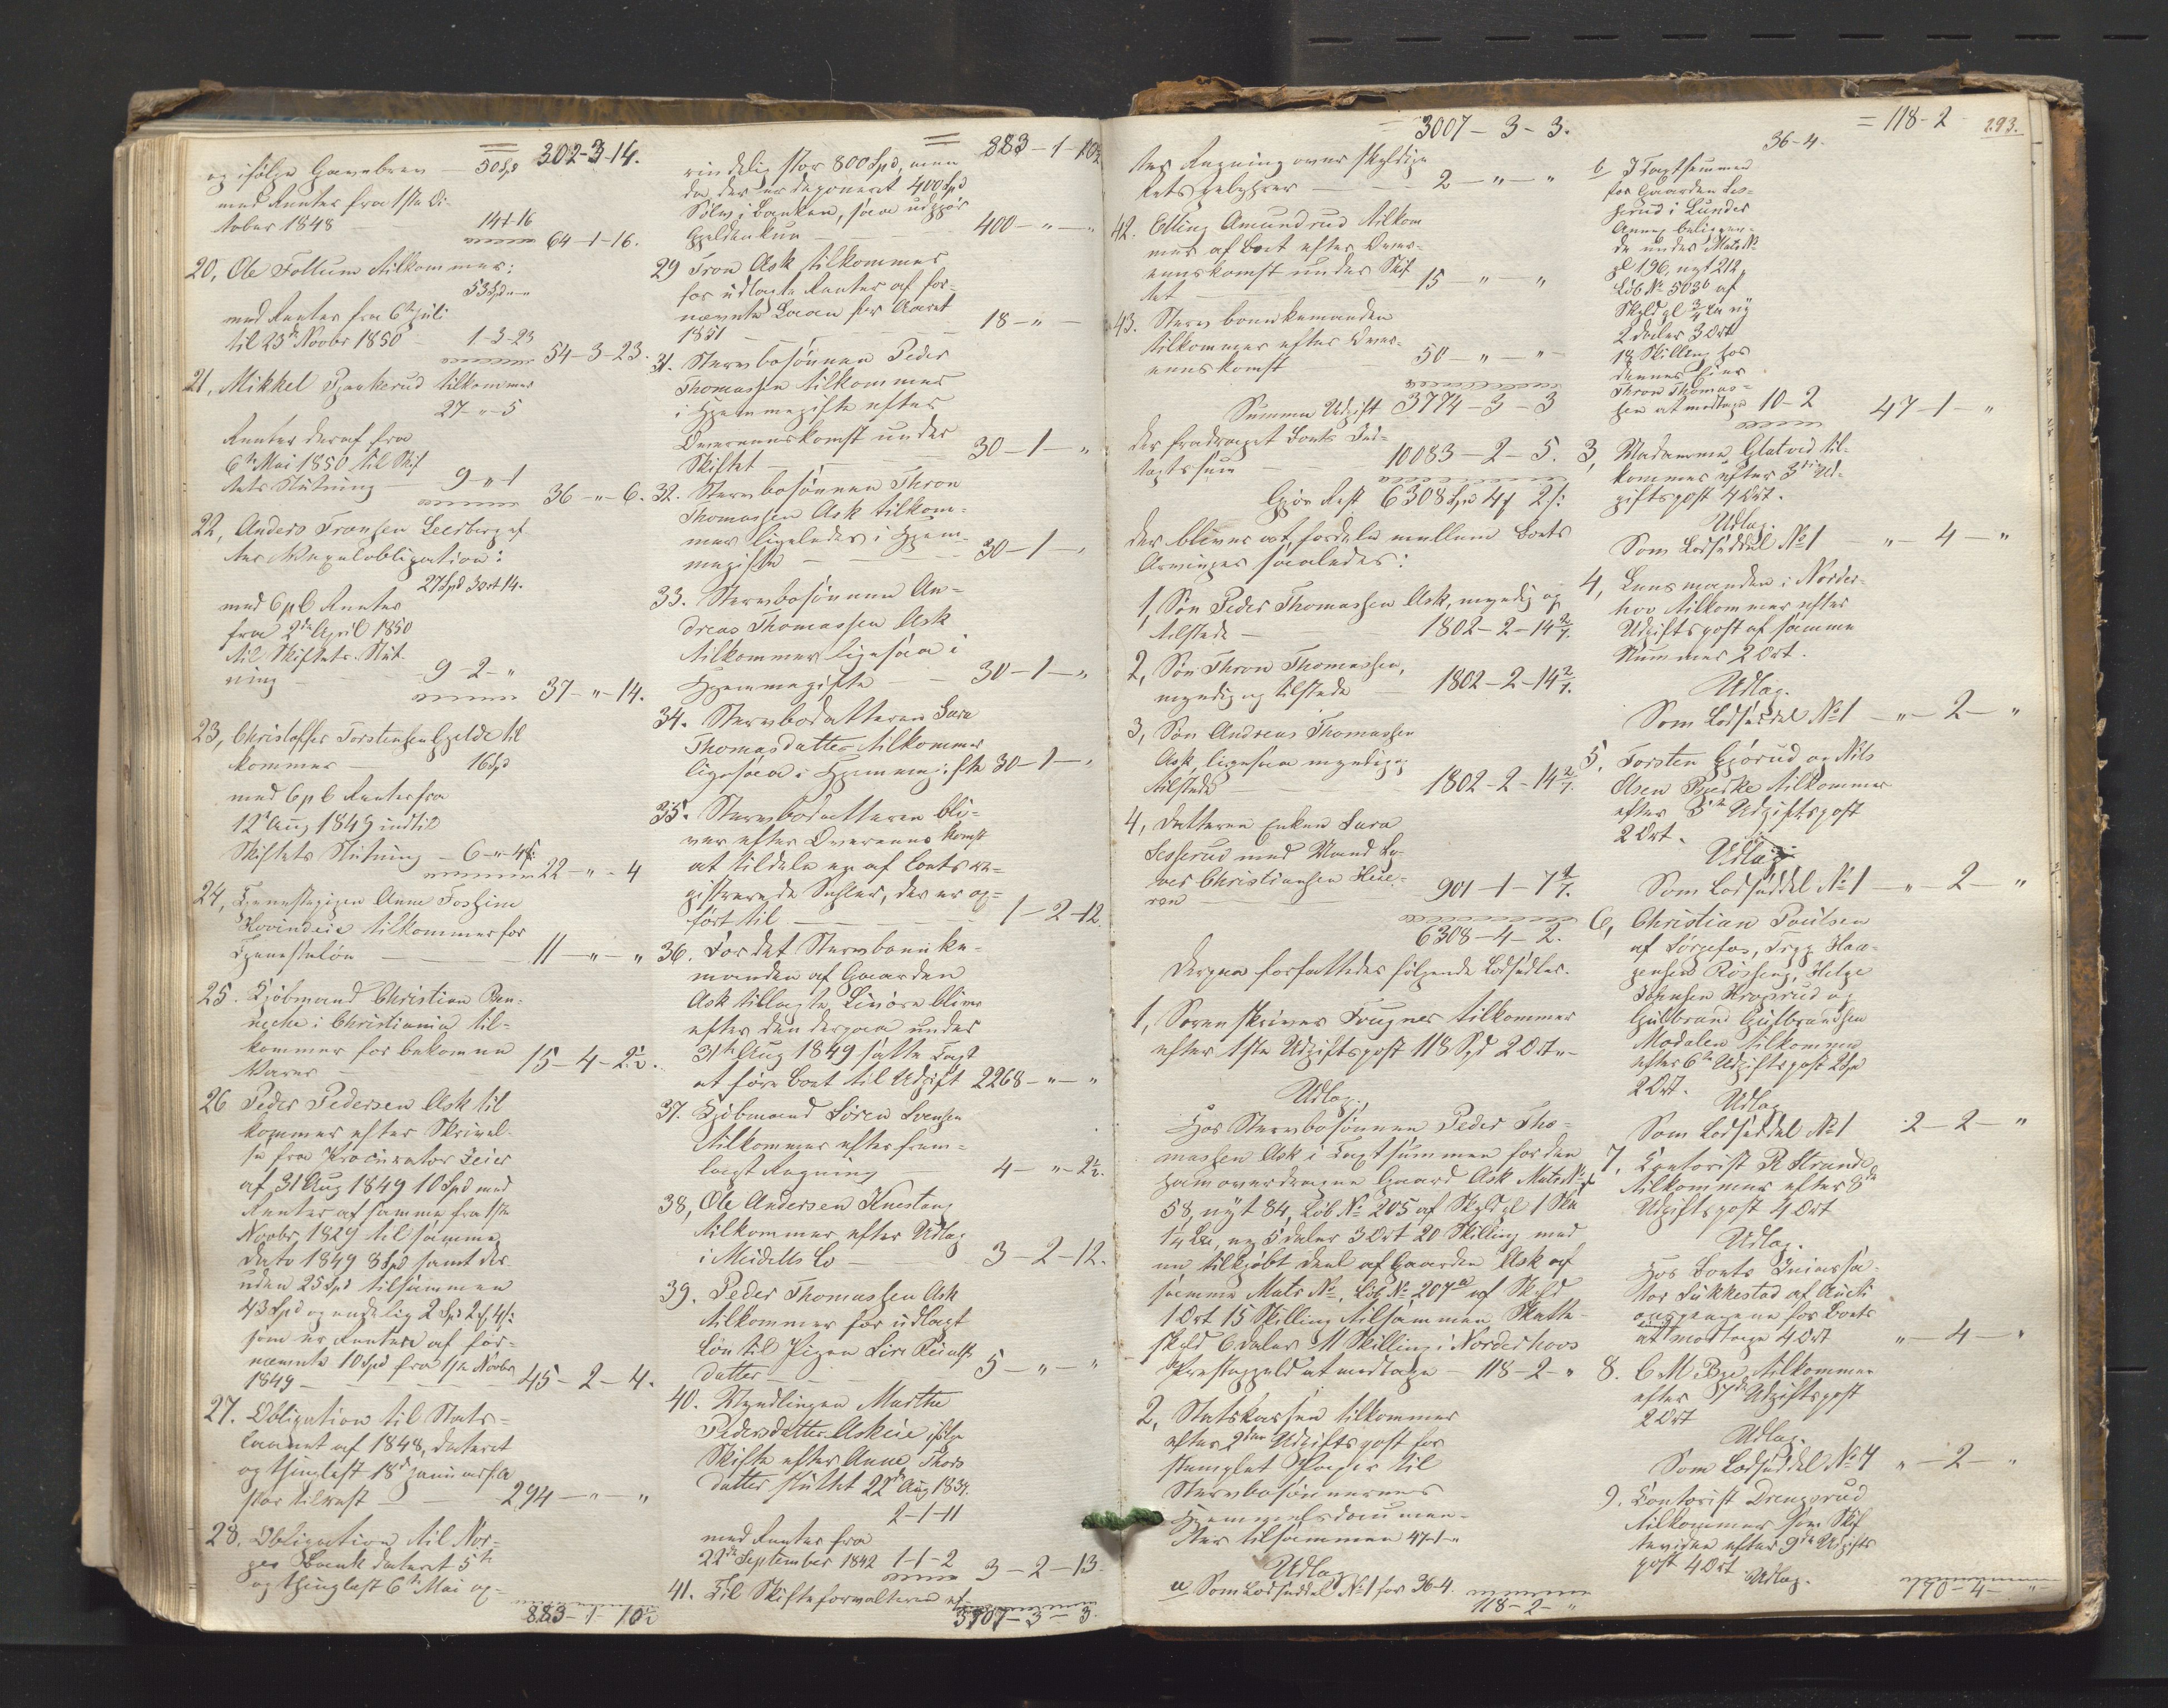 = 302-3-14.
og ifølge Gavebrev — 50 Spd
med Renter fra 1ste Oc-
tober 1848 — 14-1-16
64-1-16.
20, Ole Follum tilkommer:
53 Spd „-„
med Renter fra 6te Juli
til 23de Novbr 1850 — 1-3-23
54-3-23.
21, Mikkel tilkommer
27-„-5
Renter deraf fra
6te Mai 1850 til Skif
tets Slutning — 9-„-1
36-„-6.
22, Anders Fransen af
ter Vexelobligation:
27 Spd 3 ort 14.
med 6 p C Renter
fra 2den April 1850
til Skiftets Slut-
ning — 9-2-„
37-„-14.
23, Christoffer Torstensen til
kommer — 16 Spd
med 6 p C Renter fra
12te Aug 1849 indtil
Skiftets Slutning — 6-„-4
22-„-4
24, Tjenestepigen Anne
tilkommer for
Tjenesteløn — 11-„-„
25. Kjøbmand Christian
i Christiania til-
kommer for bekomne
Varer — 15-4-2½.
26 Peder Pedersen Ask til
kommer efter Skrivel-
se fra Procurator
af 31 Aug 1849 10 Spd med
Renter af samme fra 1ste
Novbr 1829 til samme
Dato 1849 8 Spd samt des
uden 25 Spd tilsammen
43 Spd og endelig 2 Spd
som er Renten af for-
nævnte 10 Spd fra 1ste Novbr
1849 — 45-2-4.
27. Obligation til Stats-
laanet af 1848, dateret
og thinglæst 18de Januar
stor tilrest — 294-„-„
28. Obligation til Nor-
ges Bank dateret 5te
og thinglæst 6te Mai op-
883-1-10½
= 883-1-10½
rindelig stor 800 Spd, men
da der er deponeret 400 Spd
Sølv i Banken, saa udgjør
Gjelden kun — 400-„-„
29 Tron Ask tilkommer
for udlagte Renter af for-
nævnte Laan for Aaret
1851 — 18-„-
31. Stervbosønnen Peder
Thomassen tilkommer
i Hjemmegifte efter
Overeenskomst under
Skiftet — 30-1-„
32. Stervbosønnen Thron
Thomassen Ask tilkom-
mer ligeledes i Hjem-
megifte — 30-1-„
33. Stervbosønnen An-
dreas Thomassen Ask
tilkommer ligesaa i
Hjemmegifte — 30-1-„
34. Stervbodatteren Sara
Thomasdatter tilkommer
ligesaa i Hjemmegifte 30-1-„
35. Stervbodatteren bli-
ver efter Overeenskomst
at tildele en af Boets re-
gistrerede der er op-
ført til — 1-2-12.
36. For det Stervboenke-
manden af Gaarden
Ask tillagte Livøre bliver
efter den derpaa under
31te Aug 1849 satte Taxt
at føre Boet til Udgift 2268-„-„
37. Kjøbmand Søren Svensen
tilkommer efter frem-
lagt Regning — 4-„-2½.
38, Ole Andersen Knestang
tilkommer efter Udlæg
i — 3-2-12.
39. Peder Thomassen Ask
tilkommer for udlagt
Løn til Pigen Siri
datter — 5-„-„
40. Myndlingen Marthe
Pedersdatter Askeie ifølge
Skifte efter Anne Thors
datter sluttet 22de Aug 1834.
2-1-11
med Renter fra
22de September 1842 1-1-2
3-2-13.
41. Til Skifteforvalteren ef-
3707-3-3.
293.
= 3007-3-3.
ter Regning over skyldige
Retsgebyhrer — 2-„-„
42. Elling Amundrud tilkom
mer af Boet efter Over-
eenskomst under Skif
tet — 15-„-„
43. Stervboenkemanden
tilkommer efter Over-
eenskomst — 50-„-„
Summa Udgift 3774-3-3
der fradraget Boets Ind-
tægtssum — 10083-2-5.
Gjør Rest 6308 Spd 4 2 s:
der bliver at fordele mellem Boets
Arvinger saaledes:
1, Søn Peder Thomassen Ask, myndig og
tilstede — 1802-2-14 2/7.
2, Søn Thron Thomassen,
myndig og tilstede 1802-2-14 2/7.
3, Søn Andreas Thomassen
Ask, ligesaa myndig og
tilstede — 1802-2-14 2/7.
4, Datteren Enken Sara
Lesserud med Mand La-
vrs Christiansen
— 901-1-7 1/7.
6308-4-2.
Derpaa forfattedes følgende Lodsedler.
1, Sorenskriver Frugner tilkommer
efter 1ste Udgiftspost 118 Spd 2 Ort „-
Udlæg.
Hos Stervbosønnen Peder Tho-
massen Ask i Taxtsummen for den
ham overdragne Gaard Ask Matr No
58, nyt 84, Løb No 205 af Skyld gl 1 Skd
1/4 , ny 5 Daler 3 Ort 20 Skilling med
en tilkjøbt Deel af Gaarden Ask af
samme Matr No, Løb No 207a af Skyld
1 Ort 15 Skilling tilsammen Skatte-
skyld 6 Daler 11 Skilling i Norderhovs
Præstegjeld at modtage — 118-2-„
2, Statskassen tilkommer
efter 2den Udgiftspost for
stemplet Papir til
Stervbosønnernes
Hjemmelsdocumen-
ter tilsammen 47-1-„
Udlæg
a Som Lodseddel No 1 for 36-4.
118-2-„
= 118-2
36-4.
b I Taxtsummen
for Gaarden Les-
serud i Lunder
Annex beliggen-
de under Matr No
gl 196, nyt 212,
Løb No 503b af
Skyld gl ny
2 Daler 3 Ort
18 Skilling hos
dennes Eier
Thron Thomas-
sen at modtage 10-2
47-1-„
3, Madamme Glatved til-
kommer efter 3die Ud-
giftspost 4 Ort.
Udlæg.
Som Lodseddel No 1 „-4-„
4, Lensmanden i Norder-
hov tilkommer efter
Udgiftspost af samme
Nummer 2 Ort.
Udlæg.
Som Lodseddel No 1 -„-2-„
5, Torsten Gjørud og Nils
Olsen tilkommer
efter 5te Udgiftspost
2 Ort.
Udlæg
Som Lodseddel No 1 -„-2-„
6, Christian Poulsen
af Sørgefos, Tryg Haa-
gensen Røsseng, Helge
Johnsen og
Gulbrand Gulbrandsen
Modalen tilkommer
efter 6te Udgiftspost 2 Spd
2 Ort.
Udlæg
Som Lodseddel No 1 2-2-„
7, Contorist R Strande
tilkommer efter 8de
Udgiftspost 4 Ort
Udlæg.
Hos Boets Incassa-
tor Lükkestad af Aucti
onspengene for Boets
at modtage 4 Ort „-4-„
8. C M Bye tilkommer
efter 7de Udgiftspost
2 Ort
Udlæg.
Som Lodseddel No 7 „-2-„
9. Contorist Drengsrud
tilkommer som Skif
tevidne efter 9de Udgifts
post 4 Ort
Udlæg.
„-4-„
170